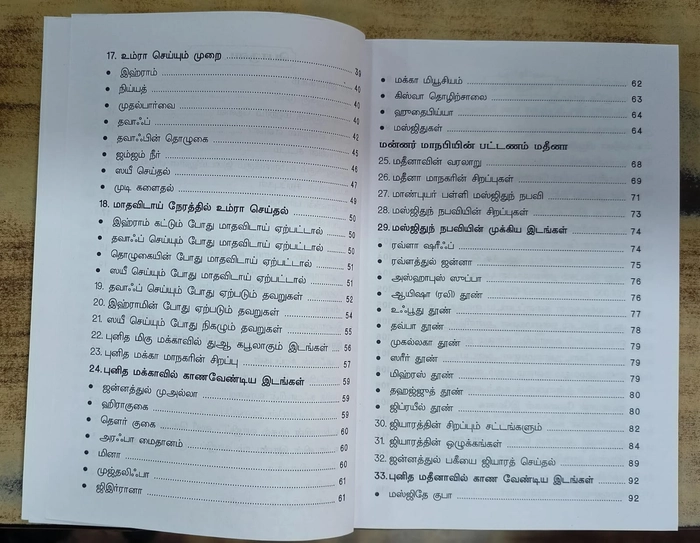 17. உம்ரா செய்யும் முறை ........ 39
• இஹ்ராம் ........ 40
• நிய்யத் ........ 40
• முதல்பார்வை ........ 40
• தவாஃப் ........ 42
• தவாஃபின் தொழுகை ........ 45
• ஜம்ஜம் நீர் ........ 46
• ஸயீ செய்தல் ........ 47
• முடி களைதல் ........ 49
18. மாதவிடாய் நேரத்தில் உம்ரா செய்தல் ........ 50
• இஹ்ராம் கட்டும் போது மாதவிடாய் ஏற்பட்டால் ........ 50
• தவாஃப் செய்யும் போது மாதவிடாய் ஏற்பட்டால் ........ 50
• தொழுகையின் போது மாதவிடாய் ஏற்பட்டால் ........ 51
• ஸயீ செய்யும் போது மாதவிடாய் ஏற்பட்டால் ........ 51
19. தவாஃப் செய்யும் போது ஏற்படும் தவறுகள் ........ 52
20. இஹ்ராமின் போது ஏற்படும் தவறுகள் ........ 54
21. ஸயீ செய்யும் போது நிகழும் தவறுகள் ........ 55
22. புனித மிகு மக்காவில் துஆ கபூலாகும் இடங்கள் .... 56
23. புனித மக்கா மாநகரின் சிறப்பு ........ 57
24. புனித மக்காவில் காணவேண்டிய இடங்கள் ........ 59
• ஜன்னத்துல் முஅல்லா ........ 59
• ஹிராகுகை ........ 59
• தௌர் குகை ........ 60
• அரஃபா மைதானம் ........ 60
• மினா ........ 60
• முஜ்தலிஃபா ........ 61
• ஜிஇர்ரானா ........ 61
• மக்கா மியூசியம் ........ 62
• கிஸ்வா தொழிற்சாலை ........ 63
• ஹுதைபிய்யா ........ 64
• மஸ்ஜிதுகள் ........ 64
மன்னர் மாநபியின் பட்டணம் மதீனா
25. மதீனாவின் வரலாறு ........ 68
26. மதீனா மாநகரின் சிறப்புகள் ........ 69
27. மாண்புயர் பள்ளி மஸ்ஜிதுந் நபவி ........ 71
28. மஸ்ஜிதுந் நபவியின் சிறப்புகள் ........ 73
29. மஸ்ஜிதுந் நபவியின் முக்கிய இடங்கள் ........ 74
• ரவ்ளா ஷரீஃப் ........ 74
• ரவ்ளத்துல் ஜன்னா ........ 75
• அஸ்ஹாபுஸ் ஸுப்பா ........ 76
• ஆயிஷா (ரலி) தூண் ........ 76
• உஃபூது தூண் ........ 77
• தவ்பா தூண் ........ 78
• முகல்லகா தூண் ........ 79
• ஸரீர் தூண் ........ 79
• மிஹ்ரஸ் தூண் ........ 79
• தஹஜ்ஜுத் தூண் ........ 80
• ஜிப்ரயீல் தூண் ........ 80
30. ஜியாரத்தின் சிறப்பும் சட்டங்களும் ........ 82
31. ஜியாரத்தின் ஒழுக்கங்கள் ........ 84
32. ஜன்னத்துல் பகீயை ஜியாரத் செய்தல் ........ 89
33. புனித மதீனாவில் காண வேண்டிய இடங்கள் ........ 92
• மஸ்ஜிதே குபா ........ 92